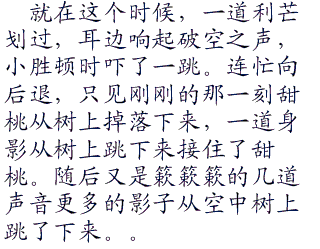 就在这个时候，一道利芒
划过，耳边响起破空之声，
小胜顿时吓了一跳。连忙向
后退，只见刚刚的那一刻甜
桃从树上掉落下来，一道身
影从树上跳下来接住了甜
桃。随后又是簌簌簌的几道
声音更多的影子从空中树上
跳了下来。。